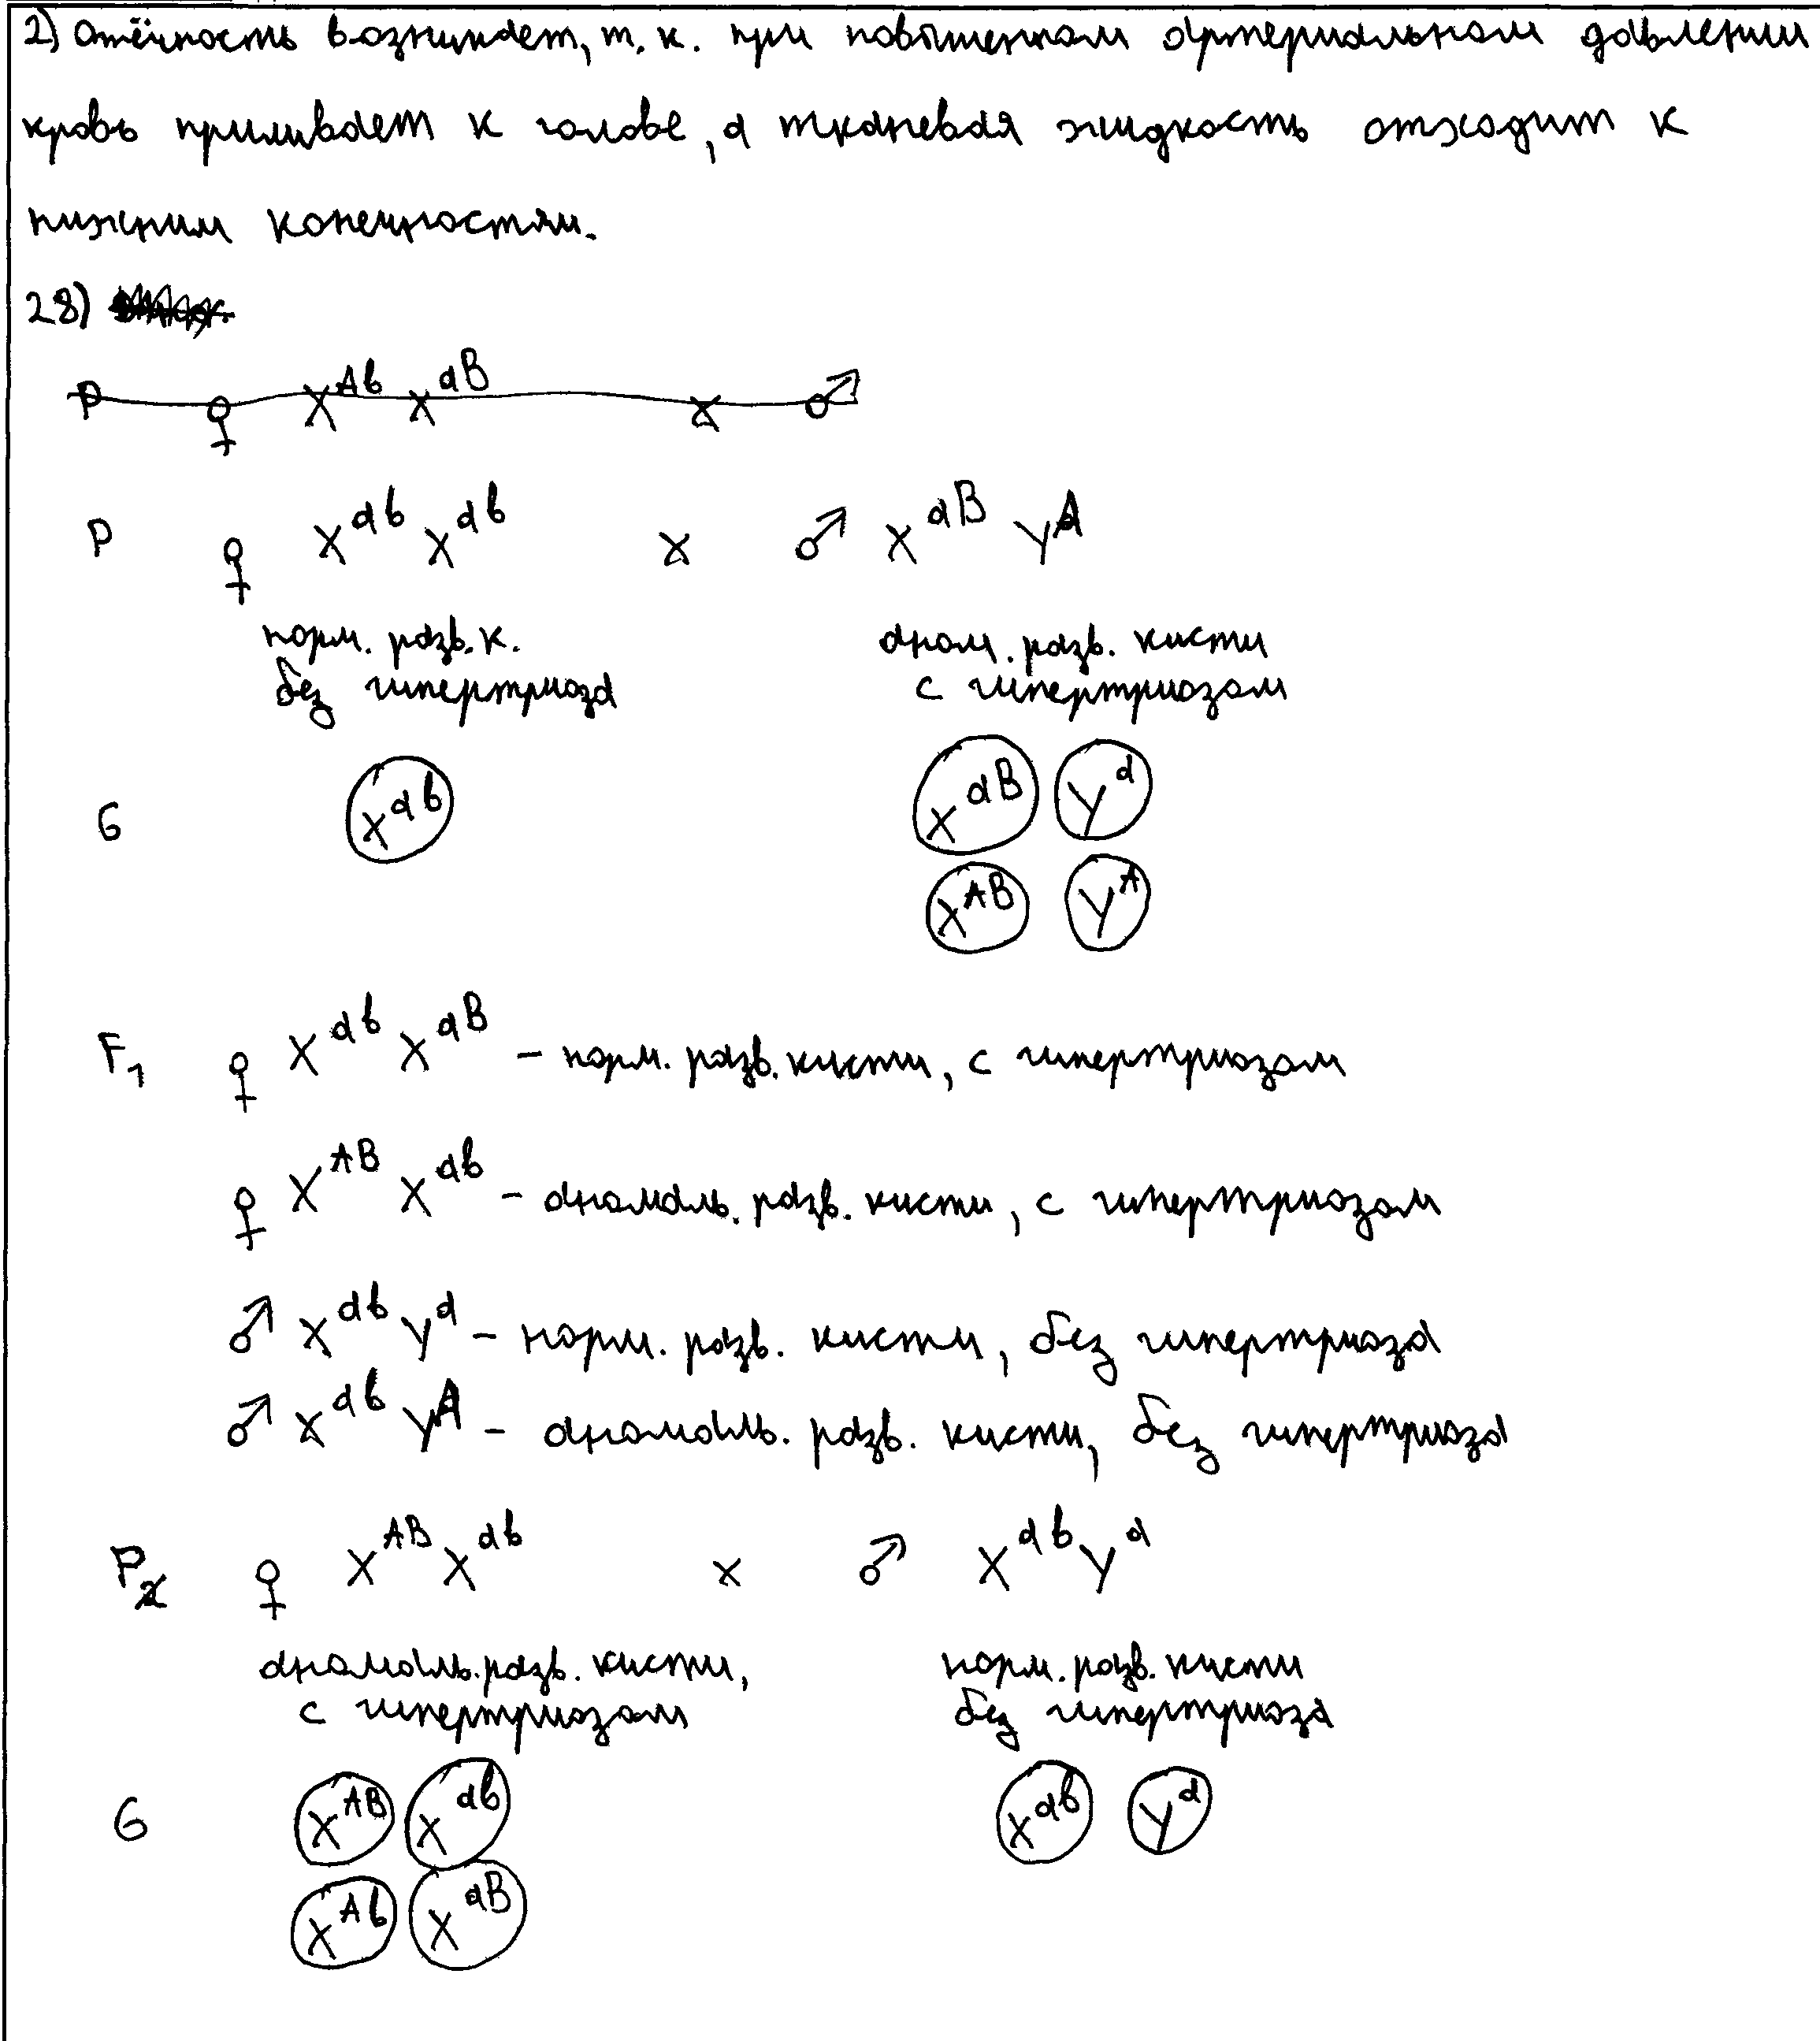 2) Отёчность возникает, т. к. при повышенном артериальном давлении
кровь приливает к голове, а тканевая жидкость отходит к
нижним конечностям.
28)
P ♀ X^Ab X^aB x ♂
P ♀ X^ab X^ab x ♂ X^aB Y^A
норм. разв. к. аном. разв. кисти
без гипертриоза с гипертриозом
G X^ab X^aB Y^a
X^AB Y^A
F1 ♀ X^ab X^aB – норм. разв. кисти, с гипертриозом
♀ X^AB X^ab – аномаль. разв. кисти, с гипертриозом
♂ X^ab Y^a – норм. разв. кисти, без гипертриоза
♂ X^ab Y^A – аномаль. разв. кисти, без гипертриоза
P2 ♀ X^AB X^ab x ♂ X^ab Y^a
аномаль. разв. кисти, норм. разв. кисти
с гипертриозом без гипертриоза
G X^AB X^ab X^ab Y^a
X^Ab X^aB